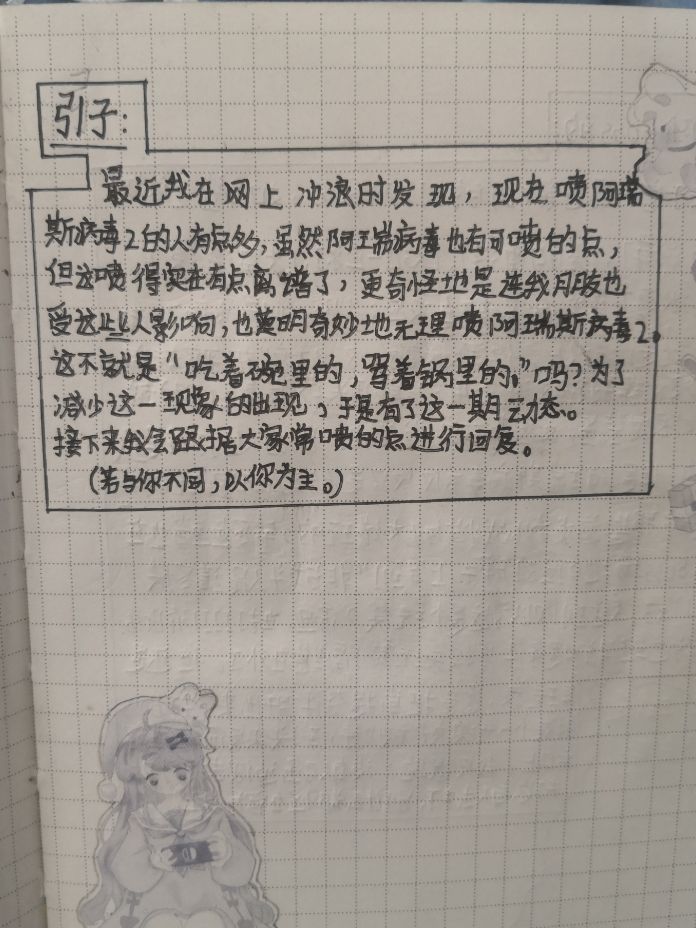 引子:
最近我在网上冲浪时发现，现在喷阿瑞
斯病毒2的人有点多，虽然阿瑞病毒也有可喷的点，
但这喷得实在有点离谱了，更奇怪地是连我朋友也
受这些人影响，也莫明奇妙地无理喷阿瑞斯病毒2。
这不就是“吃着碗里的，看着锅里的。”吗？为了
减少这一现象的出现，于是有了这一期动态。
接下来我会跟据大家常喷的点进行回复。
（若与你不同，以你为主。）